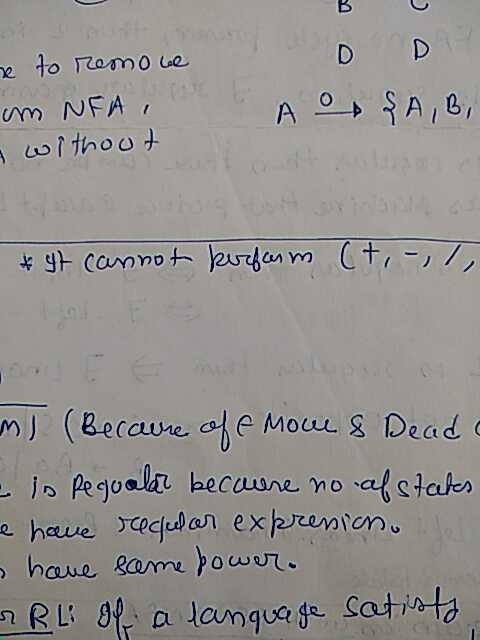 B C
D D
to remove
NFA,
A 0→ {A, B,
without
* It cannot perform (+, -, /,
(Because of ε Move & Dead
is Regualar because no of states
have regular expression.
have same power.
RL: If a language satisfy